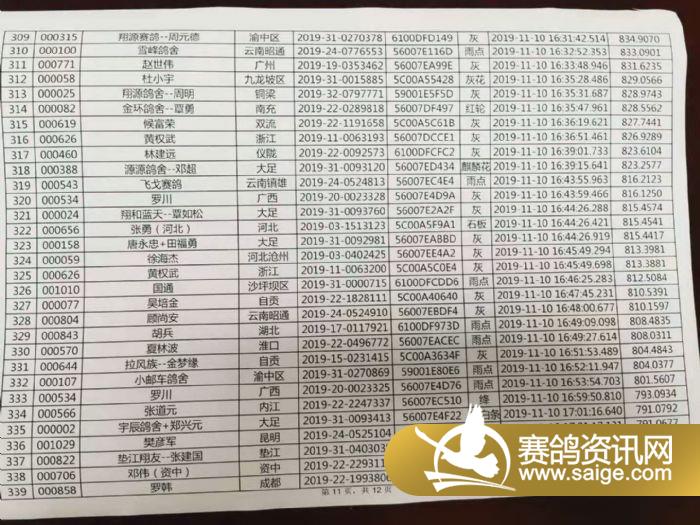 309 000315 翔源赛鸽--周元德 渝中区 2019-31-0270378 6100DFD149 灰 2019-11-10 16:31:42.514 834.9070
310 000100 雪峰鸽舍 云南昭通 2019-24-0776553 56007E116D 雨点 2019-11-10 16:32:52.353 833.0901
311 000771 赵世伟 广州 2019-19-0353462 56007EA99E 灰 2019-11-10 16:33:48.946 831.6235
312 000058 杜小宇 九龙坡区 2019-31-0015885 5C00A55428 灰花 2019-11-10 16:35:28.486 829.0566
313 000025 翔源鸽舍--周明 铜梁 2019-32-0797771 59001E5F5D 灰 2019-11-10 16:35:31.687 828.9743
314 000082 金环鸽舍--覃勇 南充 2019-22-0289818 56007DF497 红轮 2019-11-10 16:35:47.961 828.5562
315 000619 候富荣 双流 2019-22-1191658 5C00A5C61B 灰 2019-11-10 16:36:19.621 827.7441
316 000626 黄权武 浙江 2019-11-0063193 56007DCCE1 灰 2019-11-10 16:36:51.461 826.9289
317 000460 林建远 仪陇 2019-22-0092573 6100DFCFC2 灰 2019-11-10 16:39:01.733 823.6104
318 000388 源源鸽舍--邓超 大足 2019-31-0093120 56007ED434 麒麟花 2019-11-10 16:39:15.641 823.2577
319 000543 飞戈赛鸽 云南镇雄 2019-24-0524813 56007EC4E4 雨点 2019-11-10 16:43:55.908 816.2123
320 000534 罗川 广西 2019-20-0023328 56007E4D9A 灰 2019-11-10 16:43:59.466 816.1250
321 000024 翔和蓝天--覃如松 大足 2019-31-0093760 56007E2A2F 灰 2019-11-10 16:44:26.288 815.4574
322 000656 张勇（河北） 河北 2019-03-1513123 5C00A5F9A1 石板 2019-11-10 16:44:26.421 815.4541
323 000158 唐永忠+田福勇 大足 2019-31-0092981 56007EABBD 灰 2019-11-10 16:44:26.919 815.4417
324 000059 徐海杰 河北沧州 2019-03-0402425 56007EE4A2 灰 2019-11-10 16:45:49.294 813.3981
325 000626 黄权武 浙江 2019-11-0063200 5C00A5C0E4 灰 2019-11-10 16:45:49.698 813.3881
326 001010 国通 沙坪坝区 2019-31-0000715 6100DFCDD6 雨点 2019-11-10 16:46:25.283 812.5084
327 000077 吴培金 自贡 2019-22-1828111 5C00A40640 灰 2019-11-10 16:47:45.231 810.5391
328 000804 顾尚安 云南昭通 2019-24-0524910 56007EBDF4 灰 2019-11-10 16:48:00.677 810.1597
329 000843 胡兵 湖北 2019-17-0117921 6100DF973D 雨点 2019-11-10 16:49:09.098 808.4835
330 000570 夏林波 淮口 2019-22-0496772 56007EACEC 雨点 2019-11-10 16:49:27.614 808.0311
331 000644 拉风族--金梦缘 自贡 2019-15-0231415 5C00A3634F 灰 2019-11-10 16:51:53.489 804.4843
332 000107 小邮车鸽舍 渝中区 2019-31-0270869 59001E80E6 雨点 2019-11-10 16:52:11.947 804.0377
333 000534 罗川 广西 2019-20-0023325 56007E4D76 雨点 2019-11-10 16:53:54.703 801.5607
334 000566 张道元 内江 2019-22-2247337 56007EC510 绛 2019-11-10 16:59:50.810 793.0934
335 000002 宇辰鸽舍+郑兴元 大足 2019-31-0093413 56007E4F22 白条 2019-11-10 17:01:16.640 791.0792
336 001029 樊彦军 昆明 2019-24-0525104
337 000822 垫江翔友--张建国 垫江 2019-31-040303
338 000706 邓伟（资中） 资中 2019-22-229311
339 000858 罗韩 成都 2019-22-1993806
第 11 页，共 12 页
赛鸽资讯网
www.saige.com